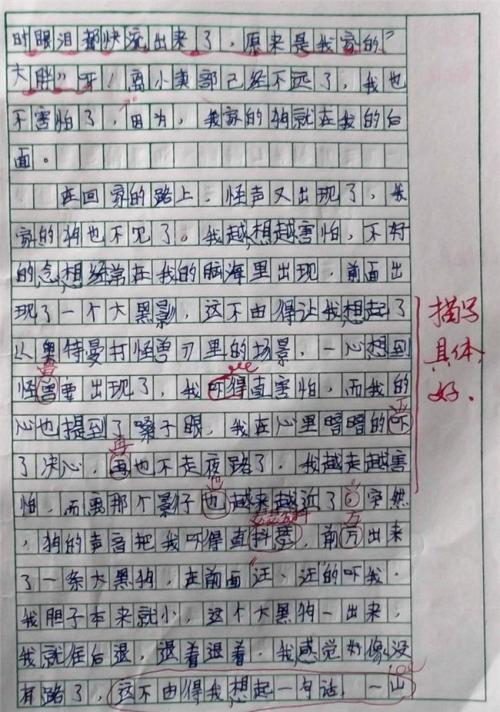 时眼泪都快流出来了，原来是我家的“
大胖”呀！离小卖部已经不远了，我也
不害怕了，因为，我家的狗就在我的后
面。
在回家的路上，怪声又出现了，我
家的狗也不见了。我越想越害怕，不好
的念想经常在我的脑海里出现，前面出
现了一个大黑影，这不由得让我想起了
从奥特曼打怪兽刀里的场景，一心想到
怪兽要出现了，我吓得直害怕，而我的
心也提到了嗓子眼，我在心里暗暗的下
了决心，再也不走夜路了。我越走越害
怕，而离那个影子也越来越近了。突然
，狗的声音把我吓得直抖，前方出来
了一条大黑狗，在前面汪、汪的吓我，
我胆子本来就小，这个大黑狗一出来，
我就往后退，退着退着，我感觉好像没
有路了，这不由得我想起一句话，一山
描写
具体，
好.